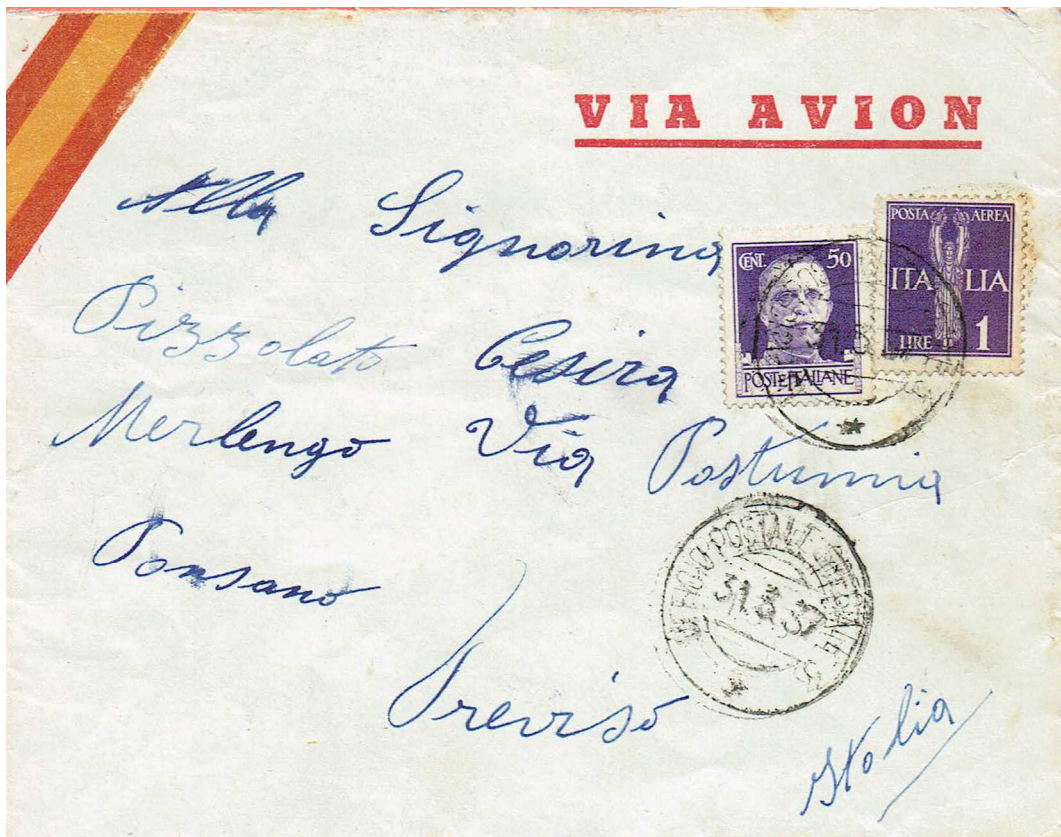 VIA AVION
Alla Signorina
Pizzolato Cesira
Merlengo Via Postumia
Ponsano
Treviso
Italia
CENT. 50
POSTE ITALIANE
POSTA AEREA
ITALIA
LIRE 1
UFFICIO POSTALE SPECIALE
31.3.37
31.3.37